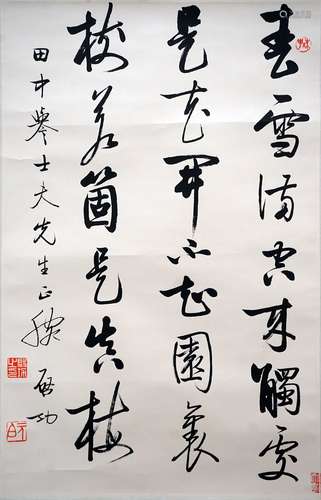 春雪滿空來觸處
是花開不知園裏
樹若箇是真梅
田中譽士夫先生正腕 启功